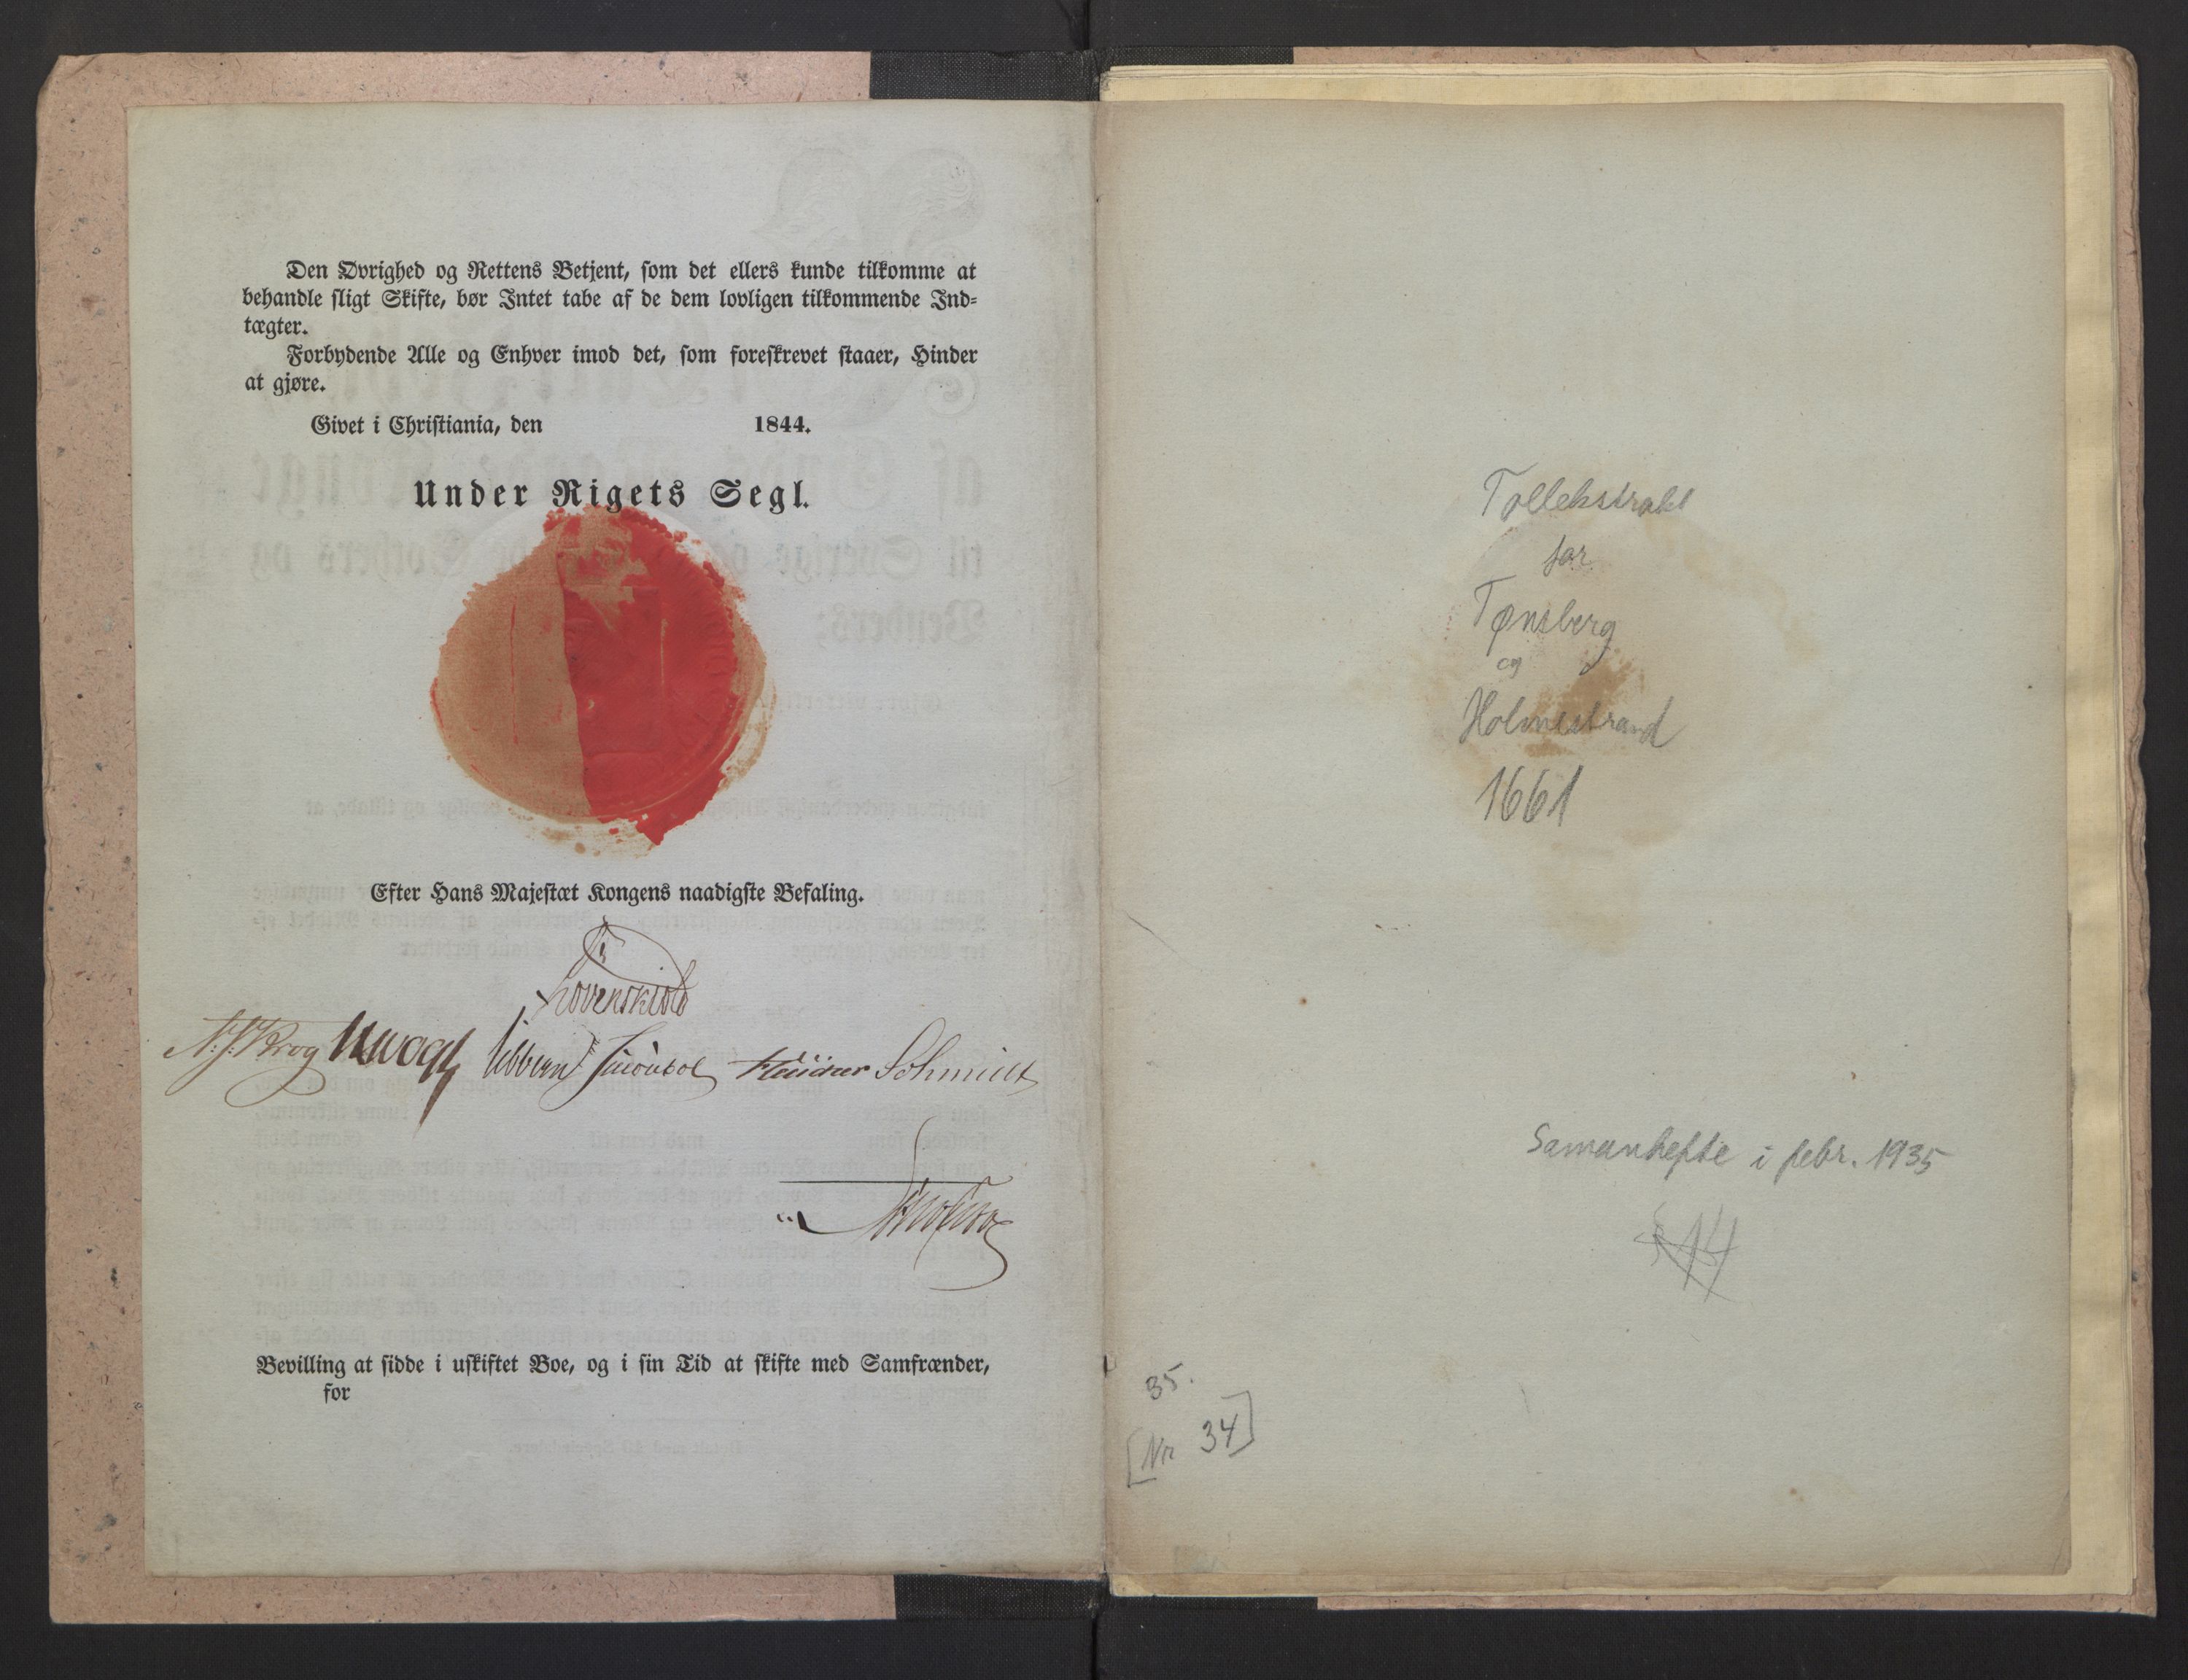 Den Øvrighed og Rettens Betjent, som det ellers kunde tilkomme at
behandle sligt Skifte, bør Intet tabe af de dem lovligen tilkommende Ind-
tægter.
Forbydende Alle og Enhver imod det, som foreskrevet staaer, Hinder
at gjøre.
Givet i Christiania, den 1844.
Under Rigets Segl.
Efter Hans Majestæt Kongens naadigste Befaling.
Løvenskiold
Krog Vogt Sibbern Schmidt
Bevilling at sidde i uskiftet Boe, og i sin Tid at skifte med Samfrænder,
for
Tollekstrakt
for
Tønsberg
og
Holmestrand
1661
Samanhefte i febr. 1935
35.
[Nr 34]